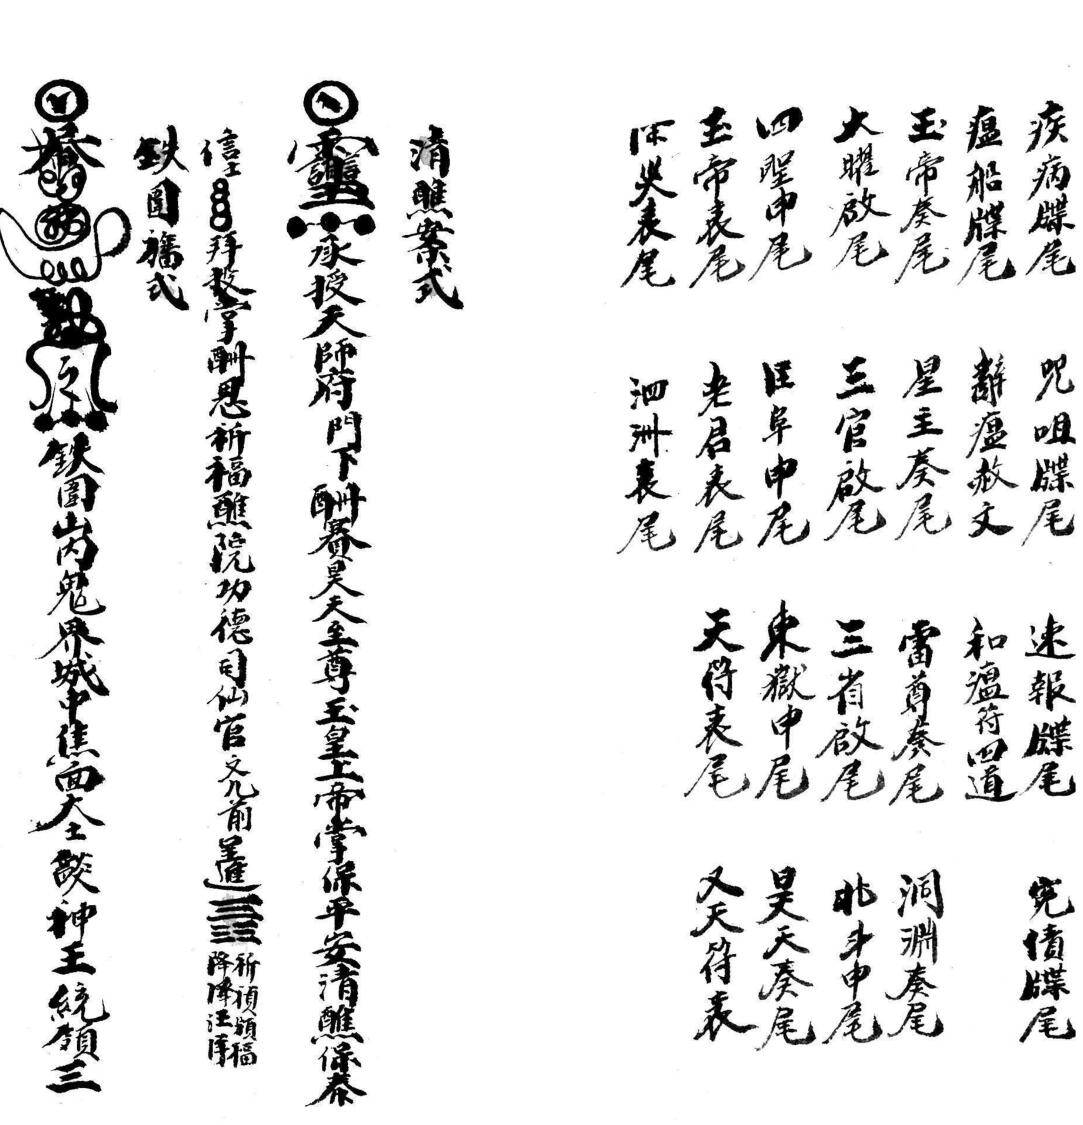 疾病牒尾 咒咀牒尾 速報牒尾 寃債牒尾
瘟船牒尾 辭瘟赦文 和瘟符四道
玉帝奏尾 星主奏尾 雷尊奏尾 洞淵奏尾
大曜啟尾 三官啟尾 三省啟尾 北斗申尾
四聖申尾 阜申尾 東嶽申尾 昊天奏尾
玉帝表尾 老君表尾 天符表尾 又天符表
災表尾 泗洲表尾
清醮案式
承授天師府門下酬賽昊天至尊玉皇上帝掌保平安清醮保泰
信士 拜投掌酬恩祈福醮院功德司仙官文几前
鉄圍旛式
鉄圍山內鬼界城中焦面大士燄神王統領三